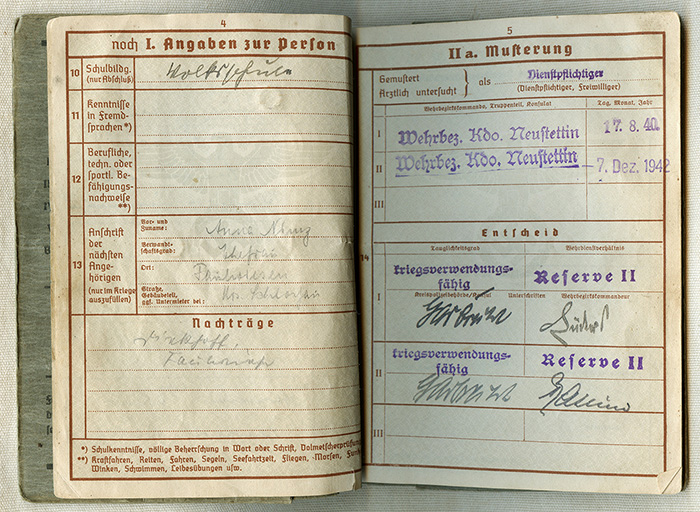 4
noch I. Angaben zur Person
10 Schulbildg. (nur Abschluß)
Volksschule
11 Kenntnisse in Fremd-
sprachen *)
12 Berufliche,
techn. oder
sportl. Be-
fähigungs-
nachweise
**)
13 Anschrift
der
nächsten
Ange-
hörigen
(nur im Kriege
auszufüllen)
Vor- und
Zuname:
Anna
Verwandt-
schaftsgrad:
Ehefrau
Ort:
Straße,
Gebäudeteil,
ggf. Untermieter bei:
Krs. Schlochau
Nachträge
*) Schulkenntnisse, völlige Beherrschung in Wort oder Schrift, Dolmetscherprüfung
**) Kraftfahren, Reiten, Fahren, Segeln, Seefahrtzeit, Fliegen, -Morsen, Funk
Winken, Schwimmen, Leibesübungen usw.
5
II a. Musterung
Gemustert
Ärztlich untersucht
als
Dienstpflichtiger
(Dienstpflichtiger, Freiwilliger)
Wehrbezirkskommando, Truppenteil, Konsulat
Tag, Monat, Jahr
I Wehrbez. Kdo. Neustettin 17. 8. 40.
II Wehrbez. Kdo. Neustettin -7. Dez. 1942
III
Entscheid
14
Tauglichkeitsgrad
Wehrdienstverhältnis
I
kriegsverwendungs-
fähig
Reserve II
Kreispolizeibehörde/Konsul
Unterschriften
Wehrbezirkskommandeur
II
kriegsverwendungs-
fähig
Reserve II
III